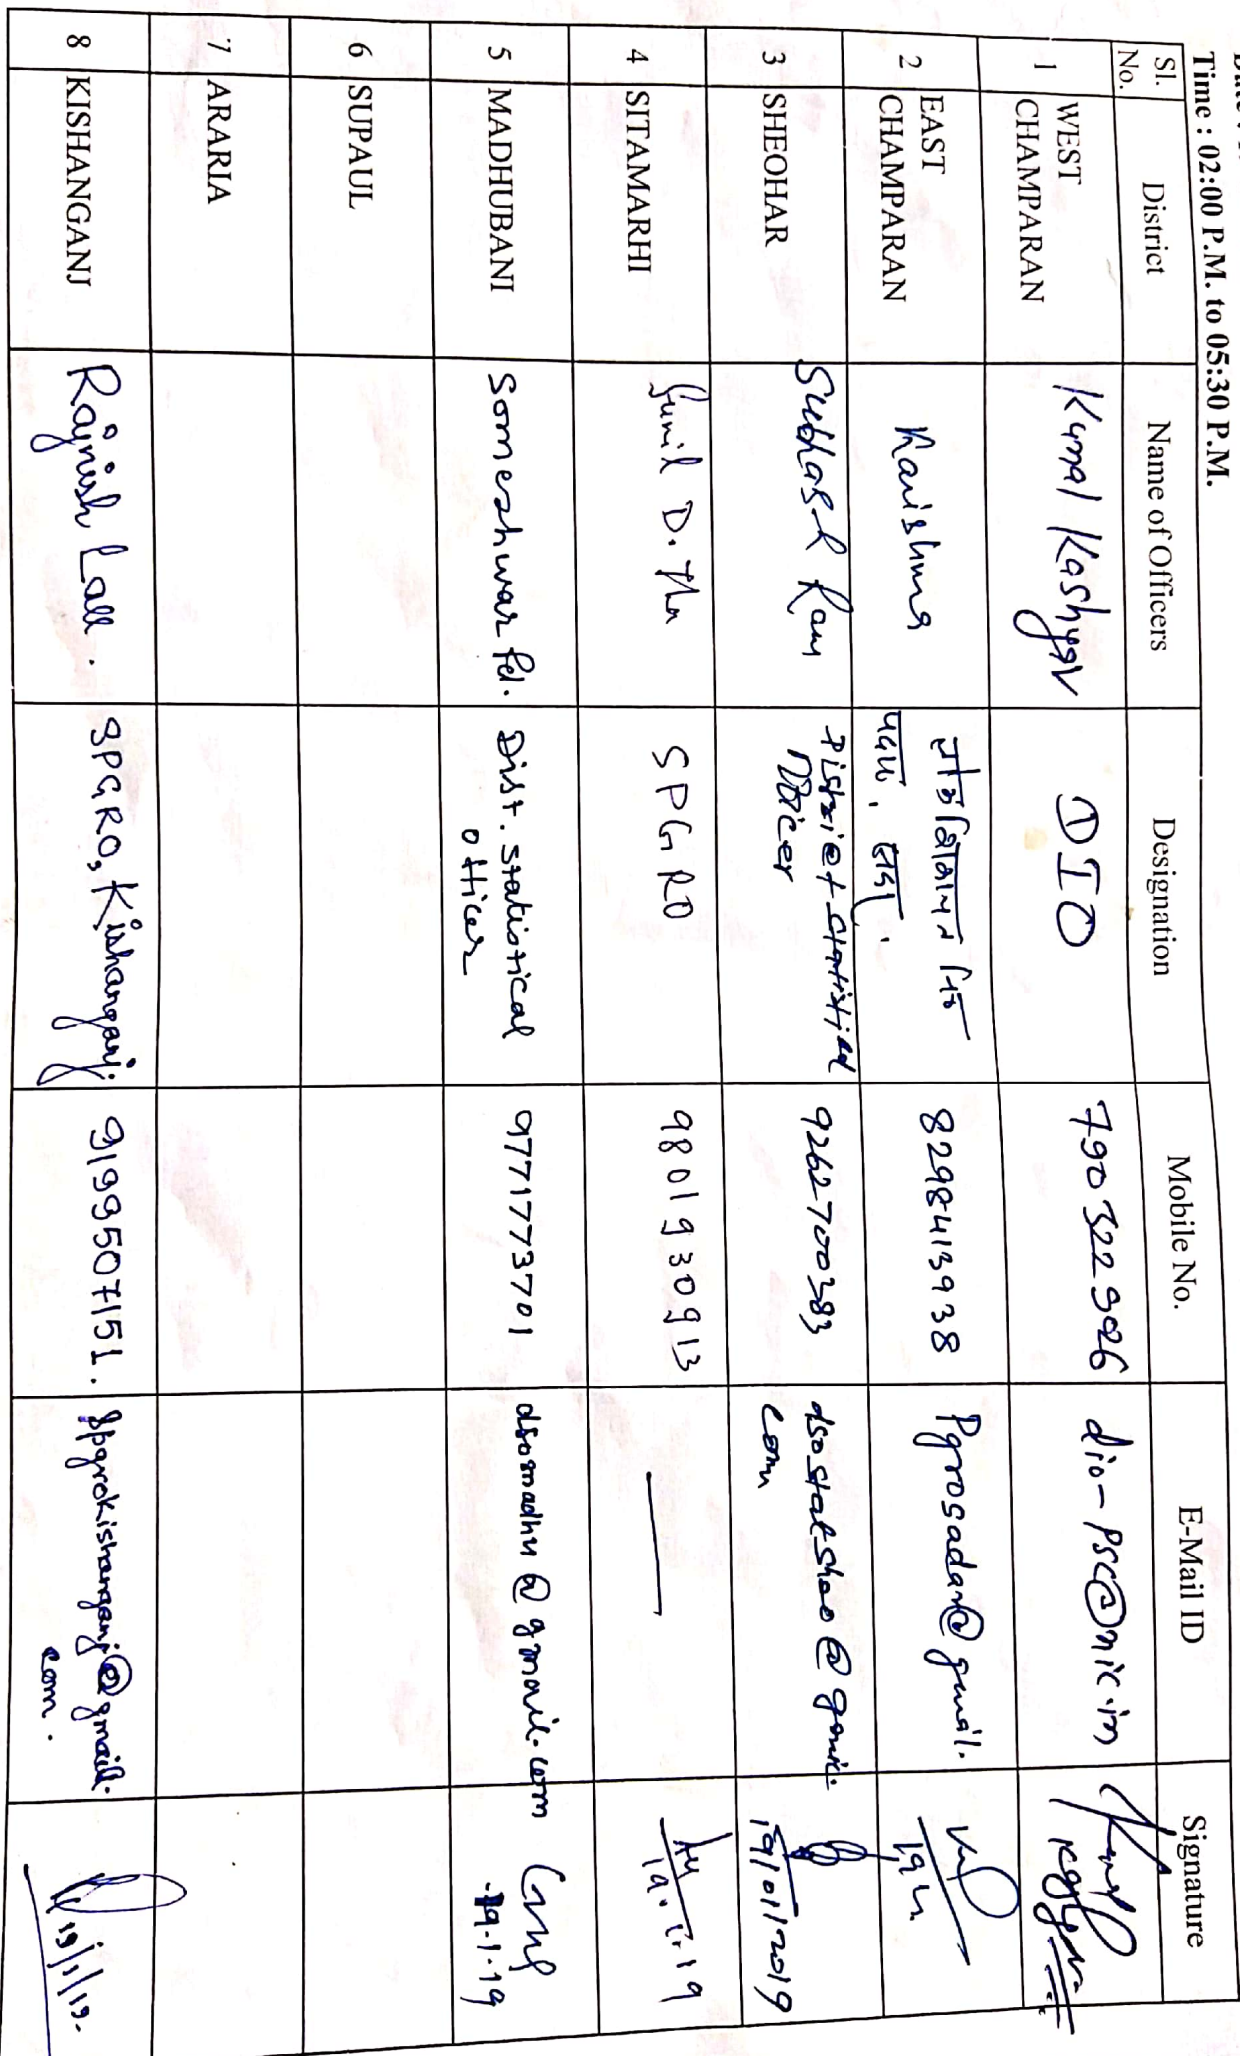 Time : 02:00 P.M. to 05:30 P.M.
Sl. No. District Name of Officers Designation Mobile No. E-Mail ID Signature
1 WEST CHAMPARAN Kunal Kashyap DIO 7903229026 dio-psc@nic.in
2 EAST CHAMPARAN Karishma 8298413938 Pgrosadar@gmail.
3 SHEOHAR Subhash Ram District Statistical Officer 9262700383 dsostatsheo@gmail.com 19/01/2019
4 SITAMARHI Sunil D. SPGRO 9801930913 — 19.1.19
5 MADHUBANI Someshwar Pd. Dist. statistical officer 9771773701 dsomadhu@gmail.com 19-1-19
6 SUPAUL
7 ARARIA
8 KISHANGANJ Rajnish Lall. SPGRO, Kishanganj. 9199507151. spgrokishanganj@gmail.com. 19/1/19.